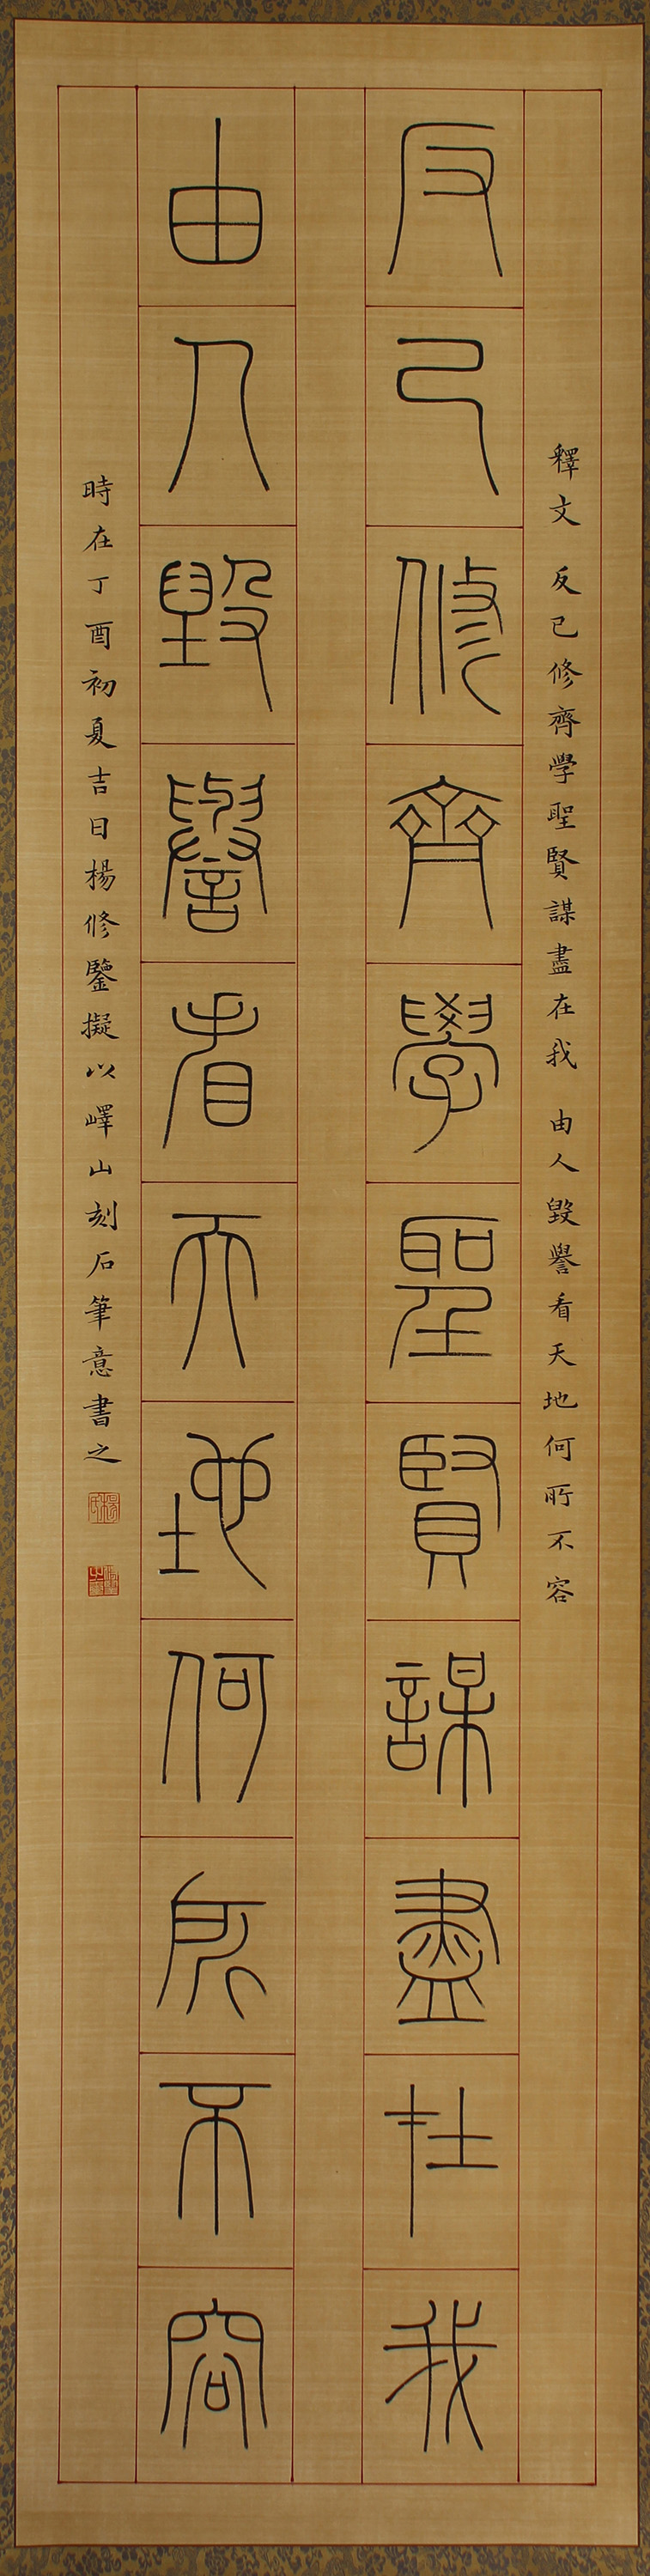 釋文 反已修齊學聖賢謀盡在我 由人毀譽看天地何所不容
反己修齊學聖賢謀盡在我
由人毀譽看天地何所不容
時在丁酉初夏吉日楊修鑒擬以嶧山刻石筆意書之